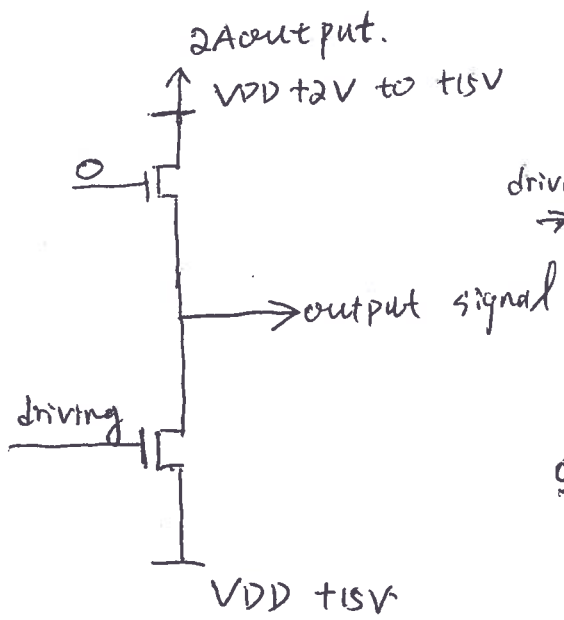 2Aoutput.
VDD +2V to +15V
0
driv
output signal
driving
VDD +15V